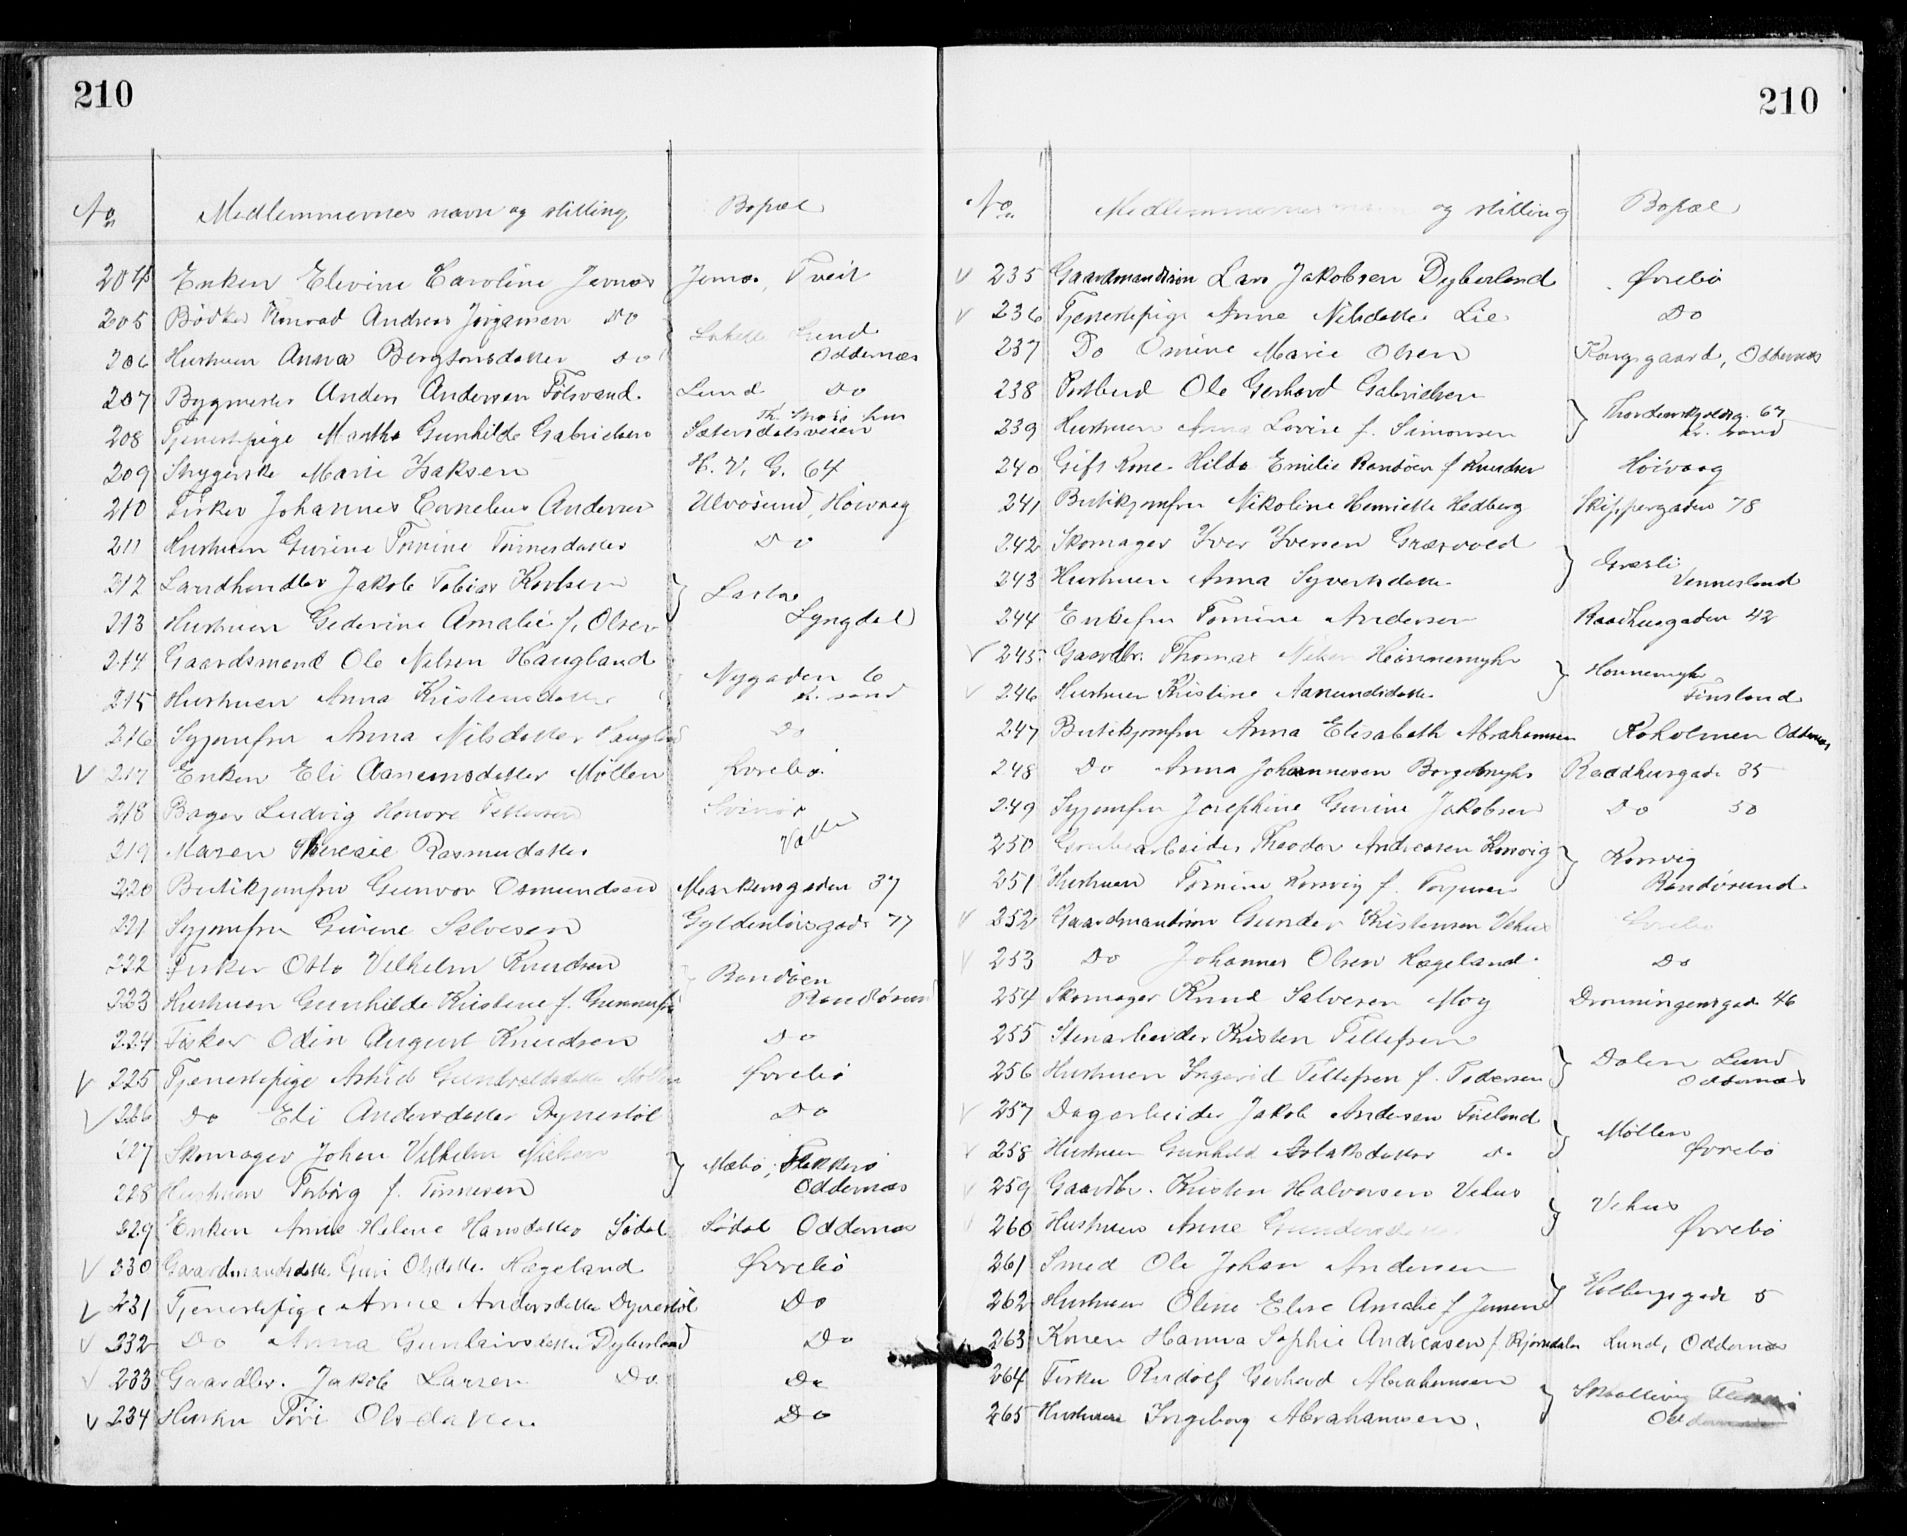 210
No Medlemmernes navn og stilling Bopæl
204 Enken Elevine Caroline Jernæs Jernæs, Tveit
205 Bödker Konrad Andreas Jörgensen Do
Lund Oddernæs
206 Hustruen Anna Bergtonsdatter Do
207 Bygmester Anders Andersen Fölsvand Lund Do
208 Tjenestepige Martha Gunhilde Gabrielsen Sætersdalsveien
209 Strygerske Marie Isaksen H. V. G. 64
210 Fisker Johannes Cornelius Andersen Ulvösund, Höivaag
211 Hustruen Gurine Tomine Tönnesdatter Do
212 Landhandler Jakob Tobias Karlsen
Lyngdal
213 Hustruen Gederine Amalie f. Olsen
214 Gaardsmand Ole Nilsen Haugland
Nygaden 6 Kr. sand
215 Hustruen Anna Kristensdatter
216 Syjomfru Anna Nilsdatter Haugland Do
V 217 Enken Eli Aanensdatter Möllen Øvrebö
218 Bager Ludvig Honore Pettersen Svinör
219 Maren Therese Rasmusdatter Valle
220 Butikjomfru Gunvor Osmundsen Markensgaden 37
221 Syjomfru Givine Salvesen Gyldenlövsgade 77
222 Fisker Otto Vilhelm Knudsen
Randöen Randösund
223 Hustruen Gunhilde Kristene f. Gunnersen
224 Fisker Odin August Knudsen Do
V 225 Tjenestepige Astrid Gundvaldsdatter Möllen Øvrebö
V 226 Do Eli Andersdatter Dynestöl Do
227 Skomager Johan Vilhelm Nilsen
Mæbö, Flekkerö Oddernæs
228 Hustruen Torborg f. Tönnesen
229 Enken Anne Helene Hansdatter Södal Södal Oddernæs
V 230 Gaardmandsdatter Guri Olsdatter Hægeland Øvrebö
V 231 Tjenestepige Anne Andersdatter Dynestöl Do
V 232 Do Anna Gunleivsdatter Dyberland Do
V 233 Gaardbr. Jakob Larsen Do Do
V 234 Hustru Töri Olsdatter Do
210
No Medlemmernes navn og stilling Bopæl
V 235 Gaardmandssön Lars Jakobsen Dyberland Øvrebö
V 236 Tjenestepige Anne Nilsdatter Lie Do
237 Do Omine Marie Olsen Kongsgaard, Oddernæs
238 Postbud Ole Gerhard Gabrielsen
Thordenskjoldsg. 67 Kr. sand
239 Hustruen Anna Lovise f. Simonsen
240 Gift Kone Hilda Emilie Randöen f Knudsen Höivaag
241 Butikjomfru Nikoline Henriette Hedberg Skippergaden 78
242 Skomager Iver Iversen Græsvold
Græsli Vennesland
243 Hustruen Anna Syvertsdatter
244 Enkefru Tomine Andersen Raadhusgaden 42
V 245 Gaardbr. Thomas Nilsen Honnemyhr
Honnemyhr Finsland
V 246 Hustruen Kristine Aanundsdatter
247 Butikjomfru Anna Elisabeth Abrahamsen Koholmen Oddernæs
248 Do Anna Johannesen Borgemyhr Raadhusgade 35
249 Syjomfru Josephine Gurine Jakobsen Do 50
250 Grubearbeider Theodor Andreasen Korsvig
Korsvig Randösund
251 Hustruen Tomine Korsvig f. Torjusen
V 252 Gaardmandssön Gunder Kristensen Vehus Øvrebö
V 253 Do Johannes Olsen Hægeland Do
254 Skomager Knud Salvesen Moy Dronningensgade 46
255 Stenarbeider Kristen Tellefsen
Dalen Lund Oddernæs
256 Hustruen Ingerid Tellefsen f. Pedersen
V 257 Dagarbeider Jakob Andersen Frieland
Möllen Øvrebö
V 258 Hustruen Gunhild Aslaksdatter Do
V 259 Gaardbr. Kristen Halvorsen Vehus
Vehus Øvrebö
260 Hustruen Anne Gundersdatter
261 Smed Ole Johan Andersen
Holbergsgade 5
262 Hustruen Oline Elise Amalie f Jensen
263 Konen Hanna Sophie Andreasen f. Bjørndalen Lund, Oddernæs
264 Fisker Rudolf Gerhard Abrahamsen
Skudevig Flekkerö Oddernæs
265 Hustruen Ingeborg Abrahamsen.